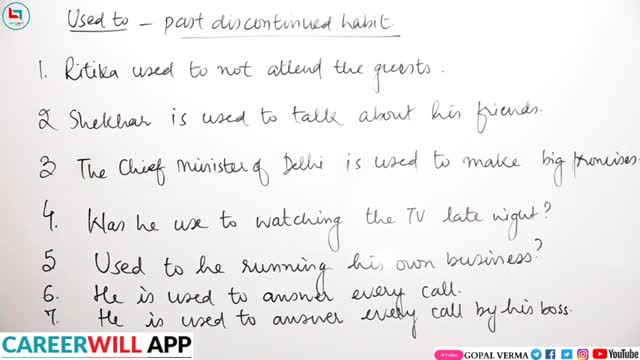 Used to - past discontinued habit
1. Ritika used to not attend the guests.
2 Shekhar is used to talk about his friends.
3 The Chief Minister of Delhi is used to make big promises.
4. Has he use to watching the TV late night?
5 Used to he running his own business?
6. He is used to answer every call.
7. He is used to answer every call by his boss.
CAREERWILL APP
Follow GOPAL VERMA YouTube